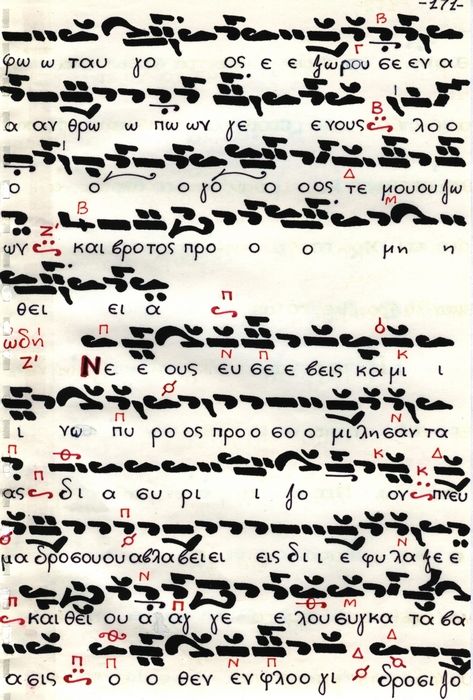 -171-
φω ω ταυ γο ος ε ε ξωρου σε εν α
α αν θρω ω πω ων γε ε νους λο ο
ο ο ο γο ο ο ος τε μου ου ζω
ων και βροτος προ ο ο μη η
θει ει α
ωδή Ζ' Νε ε ους ευ σε ε βεις κα μι ι
ι νω πυ ρο ος προ ο σο ο μι λησαν τα
ας δι α συ ρι ι ζο ον πνευ
μα δροσου ου αβλαβει ει εις δι ι ε φυ λα ξε ε
και θει ου α αγ γε ε λου συγκα τα βα
α σις ο ο θεν εν φλοο γι δροσι ζο